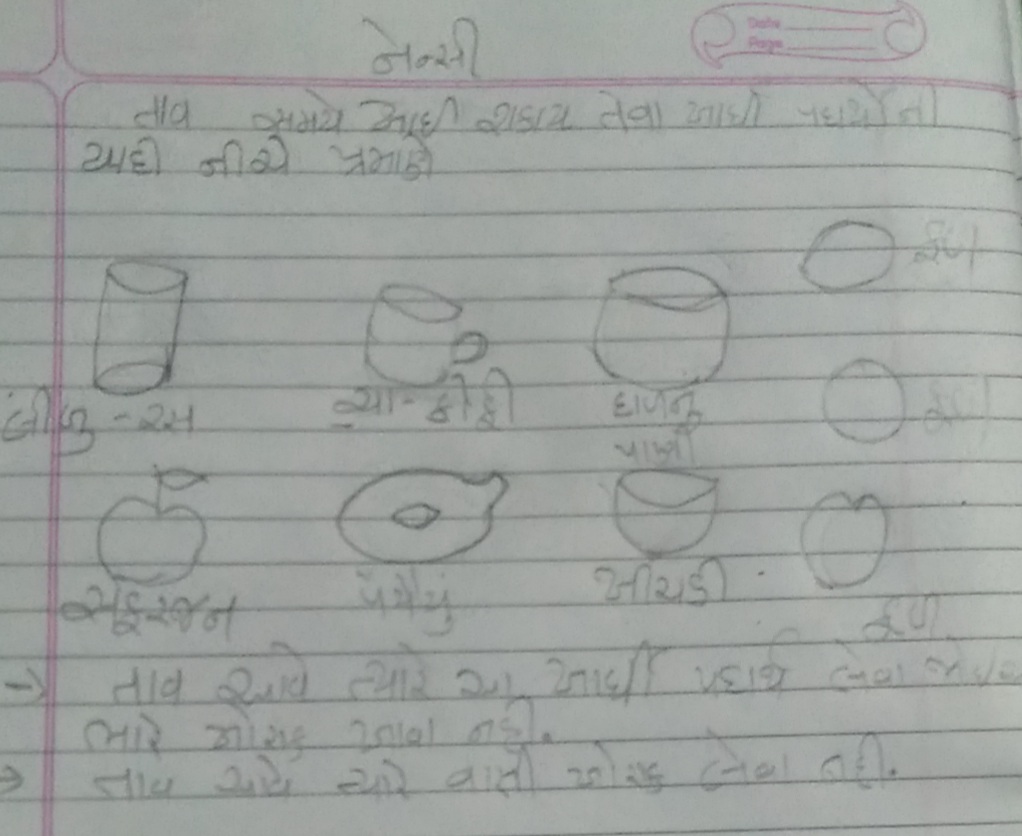 નેન્સી
Date
Page
તાવ સમયે ખાઈ શકાય તેવા ખાદ્ય પદાર્થોની
યાદી નીચે પ્રમાણે
લીંબુ-રસ
ચા-કોફી
દાળનું
પાણી
ફળ
સફરજન
પપૈયું
ખીચડી
ફળ
તાવ આવે ત્યારે આ ખાદ્ય પદાર્થ લેવા
ભારે ખોરાક ખાવા નહી.
તાવ આવે ત્યારે વાસી ખોરાક લેવા નહી.